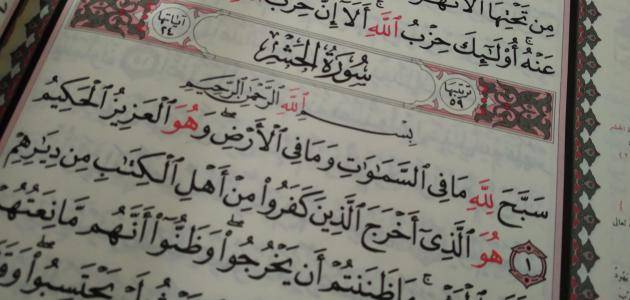 مِن تَحْتِهَا ٱلْأَنْهَٰرُ
عَنْهُ أُو۟لَٰٓئِكَ حِزْبُ ٱللَّهِ أَلَآ إِنَّ حِزْبَ
ترتيبها ٥٩ سُورَةُ الحَشْرِ آياتها ٢٤
بِسْمِ ٱللَّهِ ٱلرَّحْمَٰنِ ٱلرَّحِيمِ
سَبَّحَ لِلَّهِ مَا فِى ٱلسَّمَٰوَٰتِ وَمَا فِى ٱلْأَرْضِ وَهُوَ ٱلْعَزِيزُ ٱلْحَكِيمُ
١ هُوَ ٱلَّذِىٓ أَخْرَجَ ٱلَّذِينَ كَفَرُوا۟ مِنْ أَهْلِ ٱلْكِتَٰبِ مِن دِيَٰرِهِمْ
مَا ظَنَنتُمْ أَن يَخْرُجُوا۟ وَظَنُّوٓا۟ أَنَّهُم مَّانِعَتُهُمْ
حَيْثُ لَمْ يَحْتَسِبُوا۟